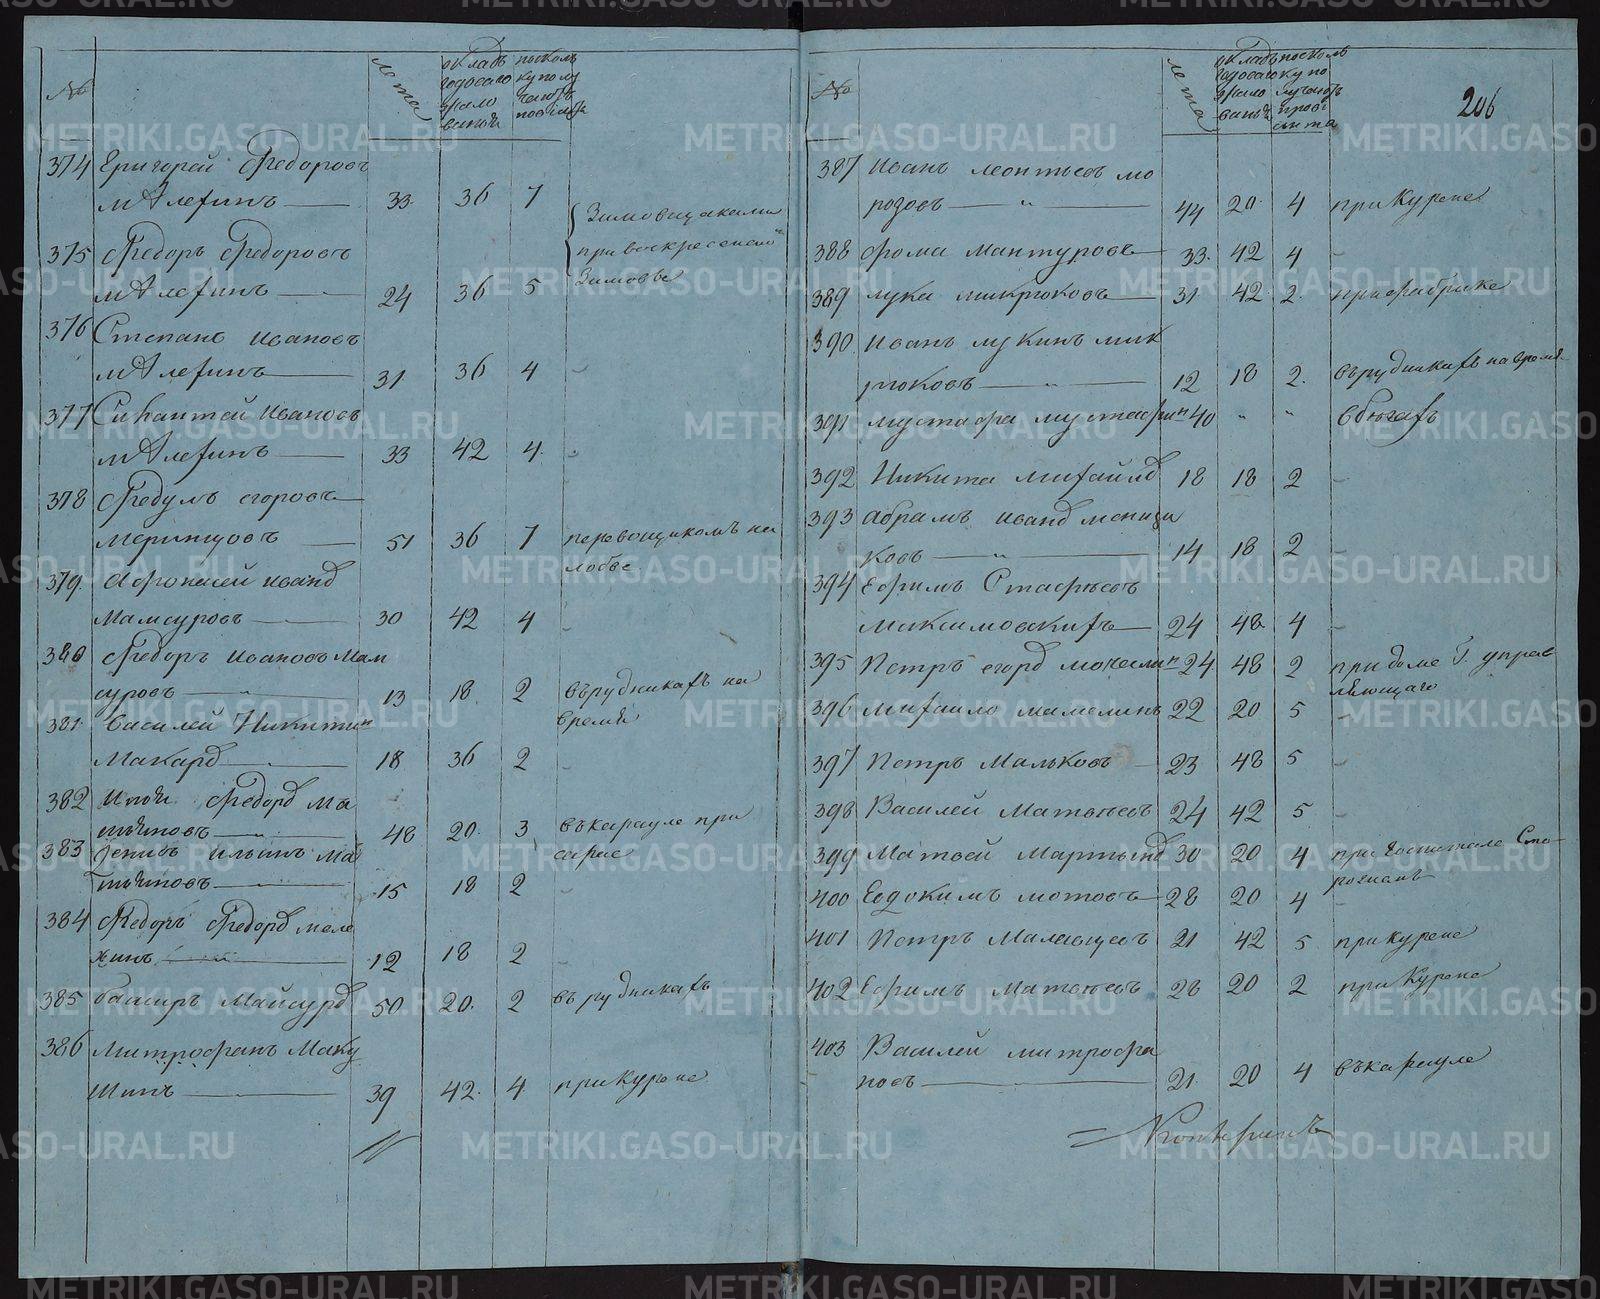 №
лета
окладъ
годоваго
жало
ванья
посколь
ку полу
чаютъ
374 Григорей Федоровъ
Мѣлехинъ 33 36 7
Зимовщиками
при воскресенской
Зимовье
375 Федоръ Федоровъ
Мѣлехинъ 24 36 5
376 Степанъ Ивановъ
Мѣлехинъ 31 36 4 -
377 Иванъ
Мѣлехинъ 33 42 4 -
378 Федулъ егоровъ
Меринцовъ 51 36 7 перевощикомъ на
лобве
379 Афонасей Иванов
Мамсуровъ 30 42 4 -
380 Федоръ Ивановъ Мам
суровъ 13 18 2 въ рудникахъ на
время
381 Василей Никитин
Макаров 18 36 2 -
382 Илья Федоров Ма
48 20 3 въ карауле при
сарае
383 Денисъ Ильинъ Ма
15 18 2 -
384 Федоръ Федоров Меле
хинъ 12 18 2 -
385 башир Майсуров 50 20 2 въ рудникахъ
386 Митрофанъ Маку
шинъ 39 42 4 при Курене
206
№
лета
окладъ
годоваго
жало
ванья
посколь
ку по
лучаютъ
прові
янта
387 Иванъ леонтьевъ мо
розовъ 44 20 4 при Курене
388 фома Мантуровъ 33 42 4 -
389 лука микрюковъ 31 42 2 при фабрике
390 Иванъ лукинъ мик
рюковъ 12 18 2 въ рудникахъ на время
391 мустафа мустафин 40 " " в бегахъ
392 Никита михайлов 18 18 2 -
393 Абрамъ Иванов менщи
ковъ 14 18 2 -
394 Ефимъ Стафѣевъ
Максимовскихъ 24 48 4 -
395 Петръ егоров 24 48 2 при доме Г. управ
ляющаго
396 михайло мамелинъ 22 20 5 -
397 Петръ Мальковъ 23 48 5 -
398 Василей Матвѣевъ 24 42 5 -
399 Матвей Мартынов 30 20 4 при госпитале Сто-
рожемъ
400 Евдокимъ мотовъ 28 20 4 -
401 Петръ Малавщевъ 21 42 5 при курене
402 Ефимъ Матвѣевъ 28 20 2 при Курене
403 Василей митрофа
новъ 21 20 4 въ карауле
METRIKI.GASO-URAL.RU